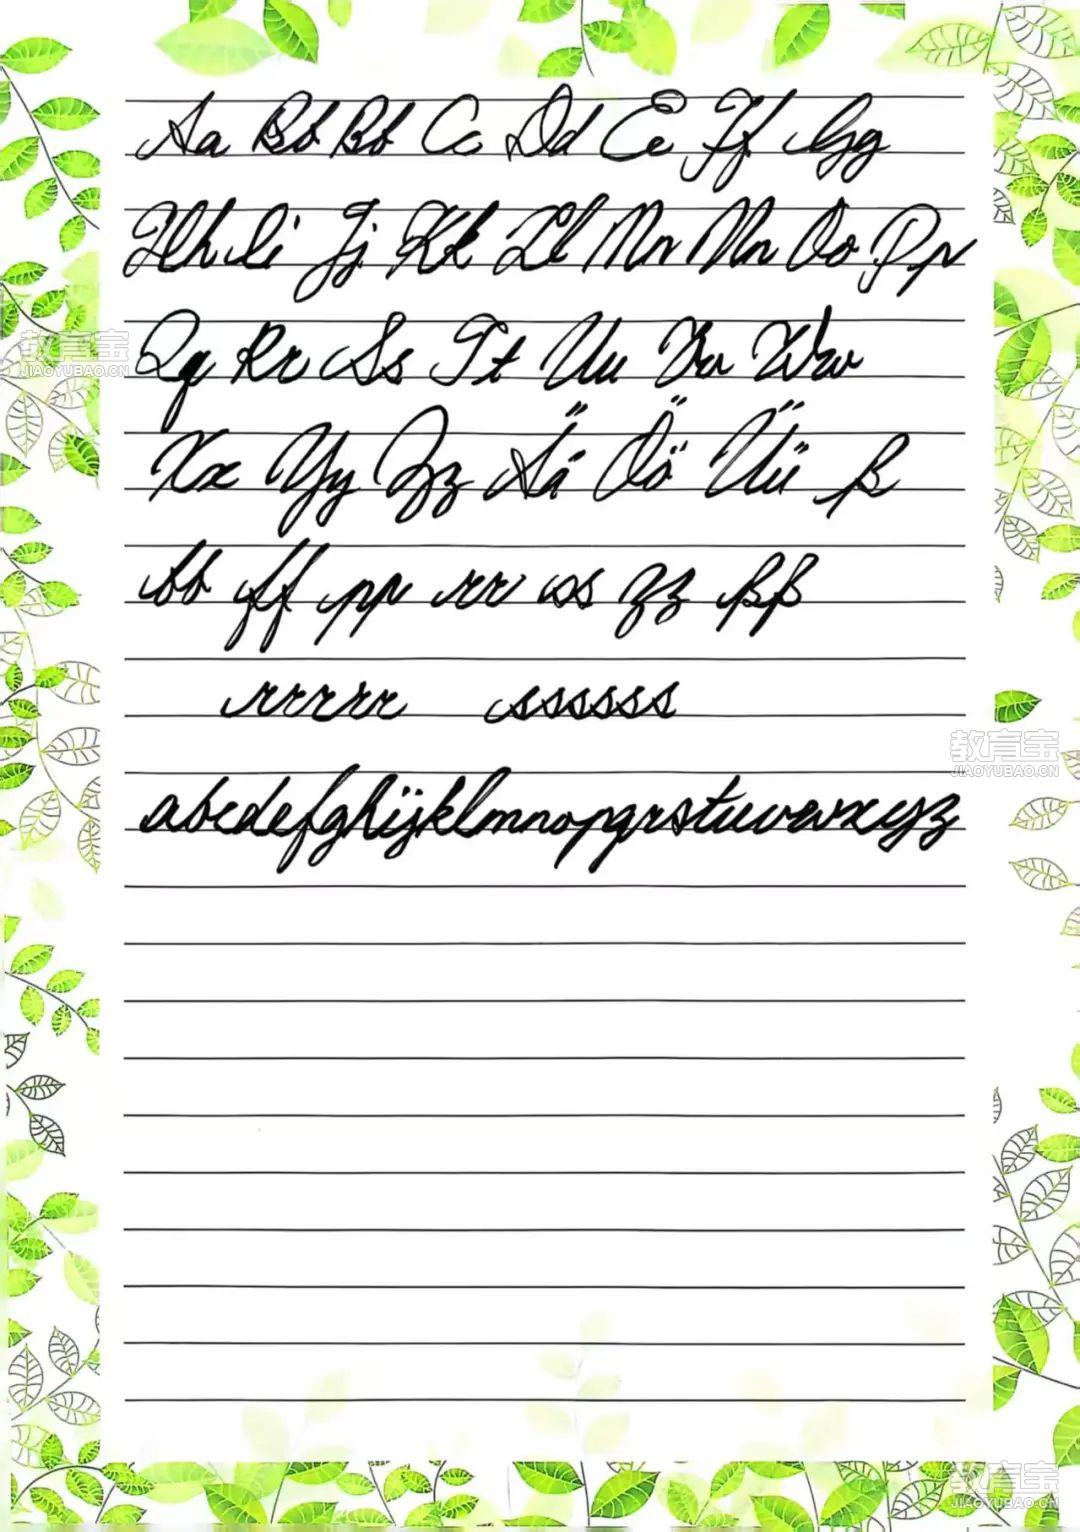 Aa Bb Bb Cc Dd Ee Ff Gg
Hh Ii Jj Kk Ll Mm Nn Oo Pp
Qq Rr Ss Tt Uu Vv Ww
教育宝
JIAOYUBAO.CN
Xx Yy Zz Ää Öö Üü ß
bb ff pp rr ss zz ßß
rrrrr ssssss
教育宝
JIAOYUBAO.CN
abcdefghijklmnopqrstuvwxyz
教育宝
JIAOYUBAO.CN